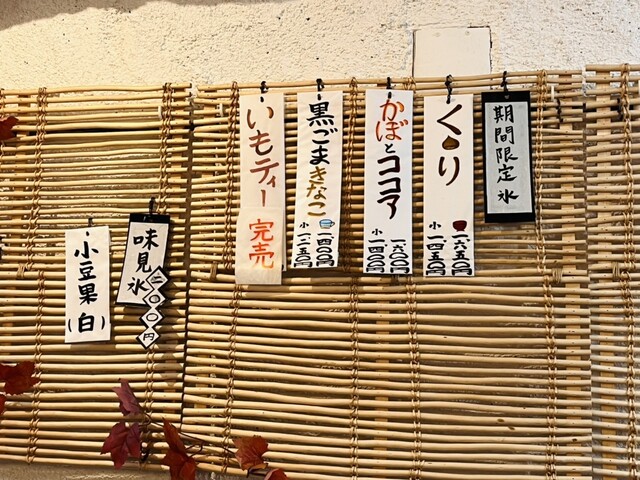 期間限定 氷
くり
一六五〇円
小 一四五〇円
かぼとココア
一六〇〇円
小 一四〇〇円
黒ごまきなこ
一四〇〇円
小 一二五〇円
いもティー 完売
味見氷
二〇〇円
小豆果(白)